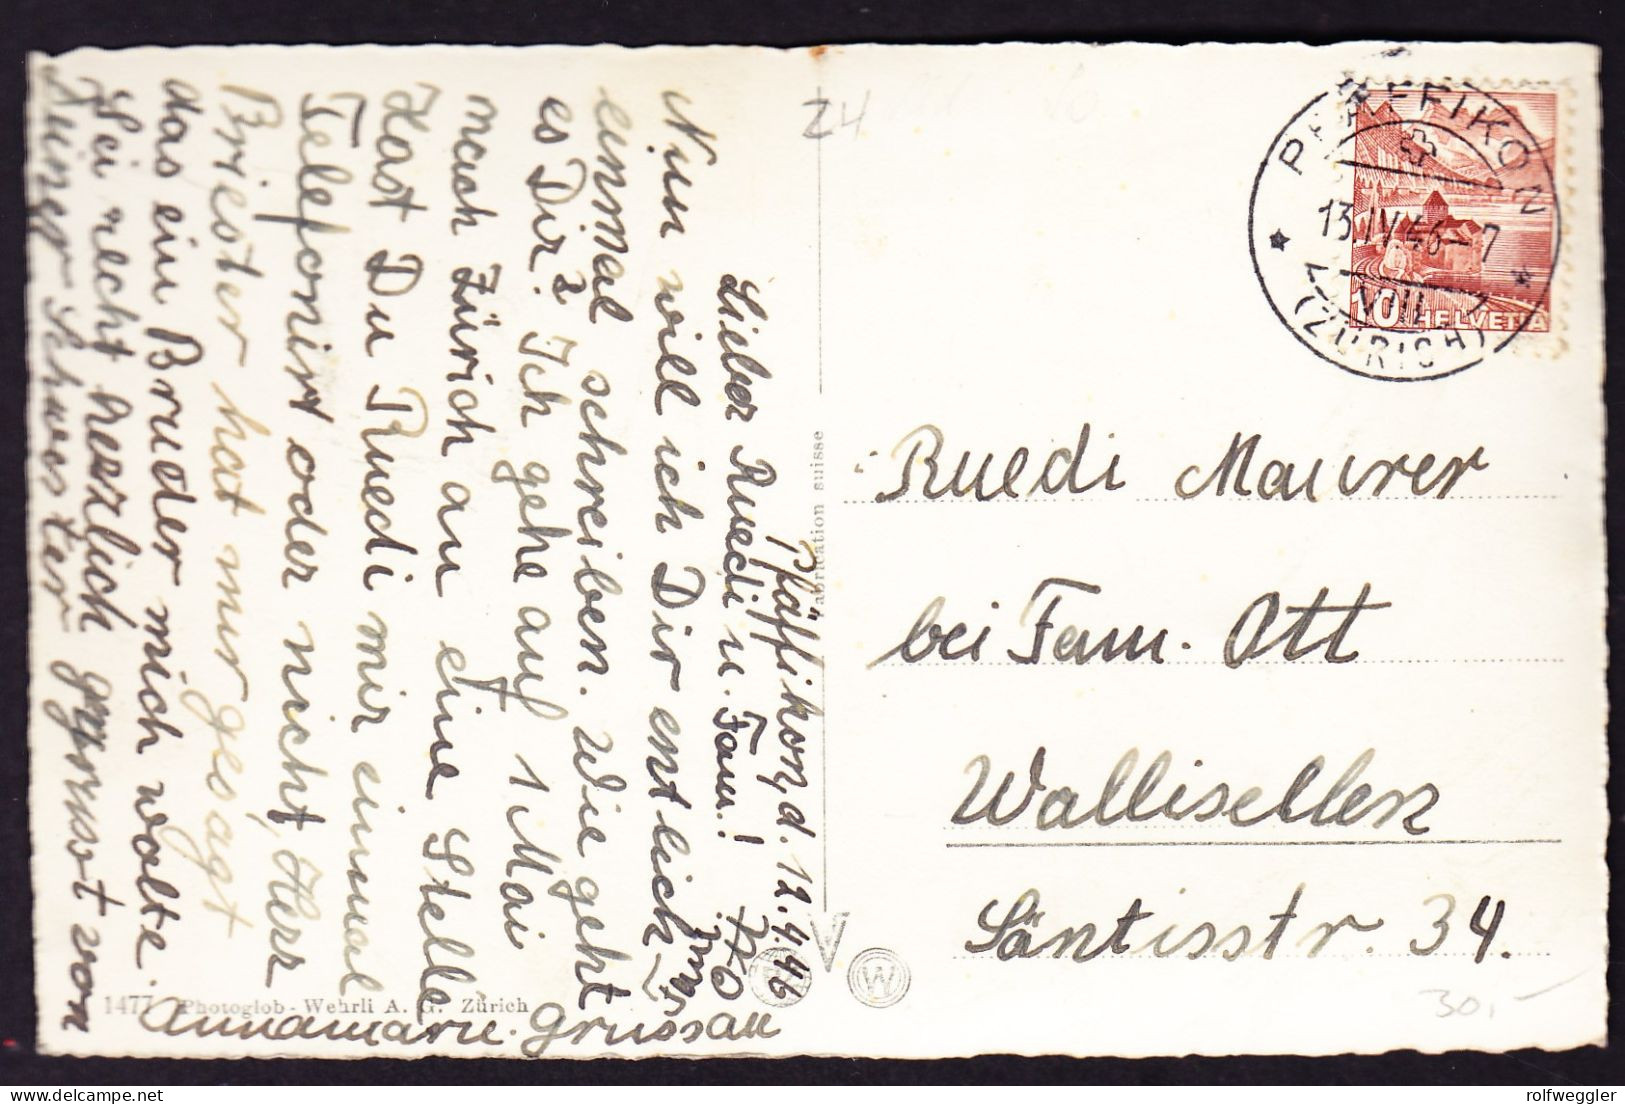 Pfäffikon, d. 12.4.46
Lieber Ruedi u. Fam.!
Nun will ich Dir entlich
einmal schreiben. Wie geht
es Dir? Ich gehe auf 1 Mai
nach Zürich an eine Stelle
Hast Du Ruedi mir einmal
Telefonirt oder nicht, Herr
Briester hat mir gesagt
das ein Bruder mich wolte.
Sei recht herzlich gegrüsst von
Deiner Schwester
Annamarie.
Z4
PFÄFFIKON
13.IV.46-7
VIII
(ZÜRICH)
10 HELVETIA
Ruedi Maurer
bei Fam. Ott
Wallisellen
Säntisstr. 34.
Fabrication suisse
1477 Photoglob-Wehrli A. G. Zürich
W
30.-
rolfweggler